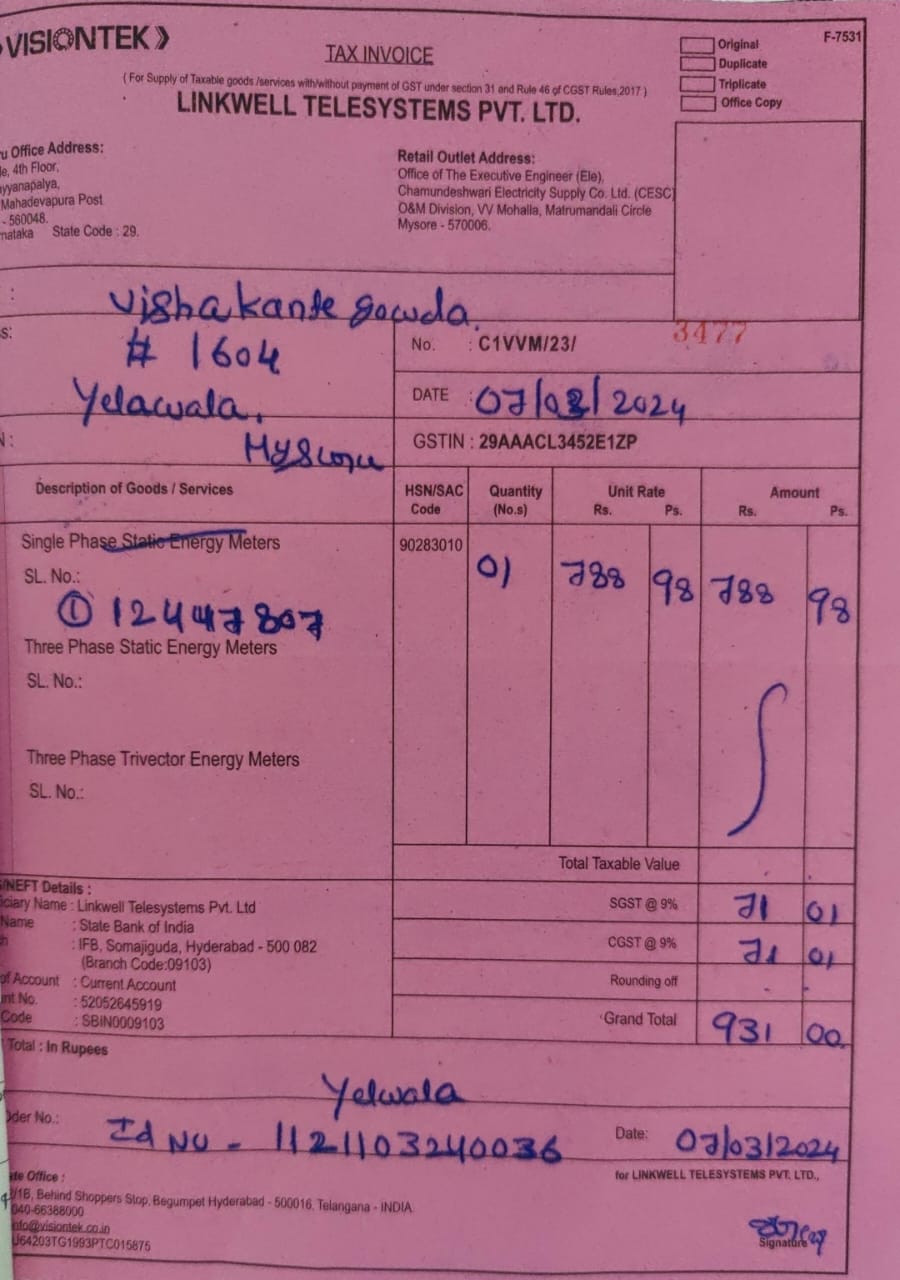 VISIONTEK
TAX INVOICE
Original
F-7531
Duplicate
Triplicate
Office Copy
( For Supply of Taxable goods /services with/without payment of GST under section 31 and Rule 46 of CGST Rules,2017 )
LINKWELL TELESYSTEMS PVT. LTD.
u Office Address:
le, 4th Floor,
yyanapalya,
Mahadevapura Post
- 560048.
nataka State Code : 29.
Retail Outlet Address:
Office of The Executive Engineer (Ele),
Chamundeshwari Electricity Supply Co. Ltd. (CESC)
O&M Division, VV Mohalla, Matrumandali Circle
Mysore - 570006.
: Vishakante gowda.
s: # 1604
Yelawala,
N : Mysore
No. : C1VVM/23/ 3477
DATE : 07/03/2024
GSTIN : 29AAACL3452E1ZP
Description of Goods / Services HSN/SAC Code Quantity (No.s) Unit Rate Rs. Ps. Amount Rs. Ps.
Single Phase Static Energy Meters 90283010 01 788 98 788 98
SL. No.:
① 12447807
Three Phase Static Energy Meters
SL. No.:
Three Phase Trivector Energy Meters
SL. No.:
Total Taxable Value
SGST @ 9% 71 01
CGST @ 9% 71 01
Rounding off
Grand Total 931 00
/NEFT Details :
iciary Name : Linkwell Telesystems Pvt. Ltd
Name : State Bank of India
h : IFB, Somajiguda, Hyderabad - 500 082
(Branch Code:09103)
of Account : Current Account
nt No. : 52052645919
Code : SBIN0009103
Total : In Rupees
Yelwala
der No.: Id NU - 1121103240036 Date: 07/03/2024
te Office :
/1B, Behind Shoppers Stop, Begumpet Hyderabad - 500016. Telangana - INDIA
040-66388000
nfo@visiontek.co.in
U64203TG1993PTC015875
for LINKWELL TELESYSTEMS PVT. LTD.,
Signature